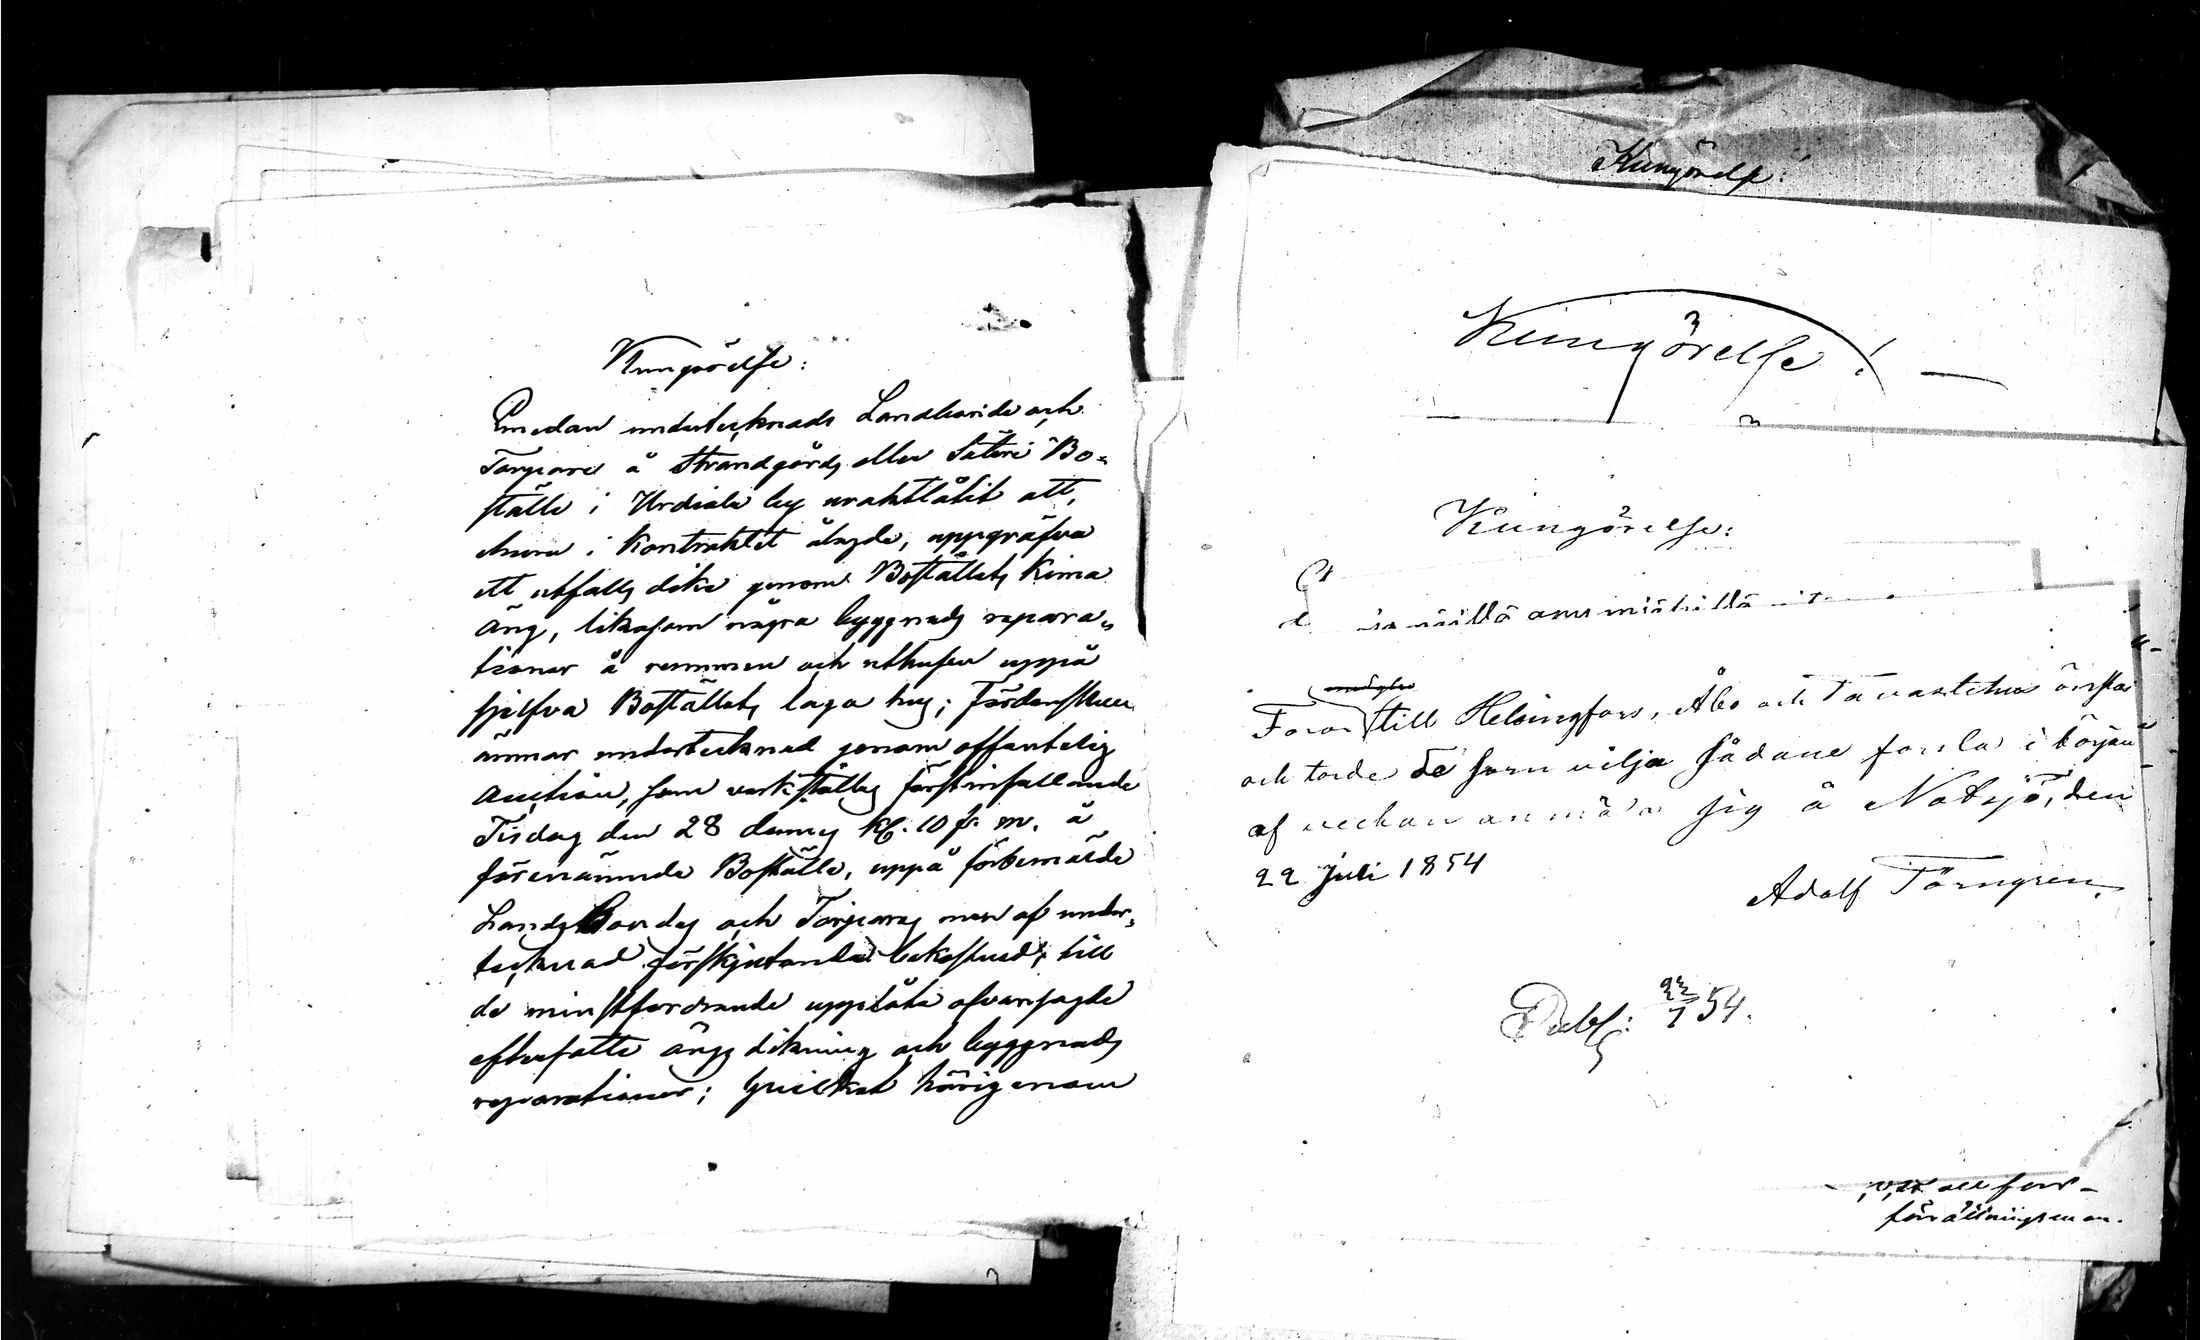 Kungörelse:
Emedan undertecknads Landboride och
Torpare å Strandgårds eller Säteri Bo-
ställe i Urdiala by uraktlåtit att,
dem i Kontraktet ålagde, uppgräfva
ett utfalls dike genom Boställets Kima
äng, likasom några byggnads repara-
tioner å rummen och uthusen uppå
sjelfva Boställets laga hus; Fördenskull
ämnar undertecknad genom offentelig
Auction, som verkställes förstinfallande
Tisdag den 28 dennes Kl. 10 f. m. å
förenämnde Boställe, uppå förbemälde
Lands Bondes och Torpares men af under-
tecknad förskjutande bekostnad, till
de minstfordrande upplåta ofvansagde
eftersatte ängs dikning och byggnads
reparationer; hvilket härigenom
Kungörelse!
Kungörelse! —
Kungörelse:
Foror till Helsingfors, Åbo och Tavastehus önskas
och torde de som vilja sådane forsla i början
af veckan anmäla sig å Notsjö, den
22 Juli 1854
Adolf Törngren.
Publ: 23/7 54.
förrättningsman.